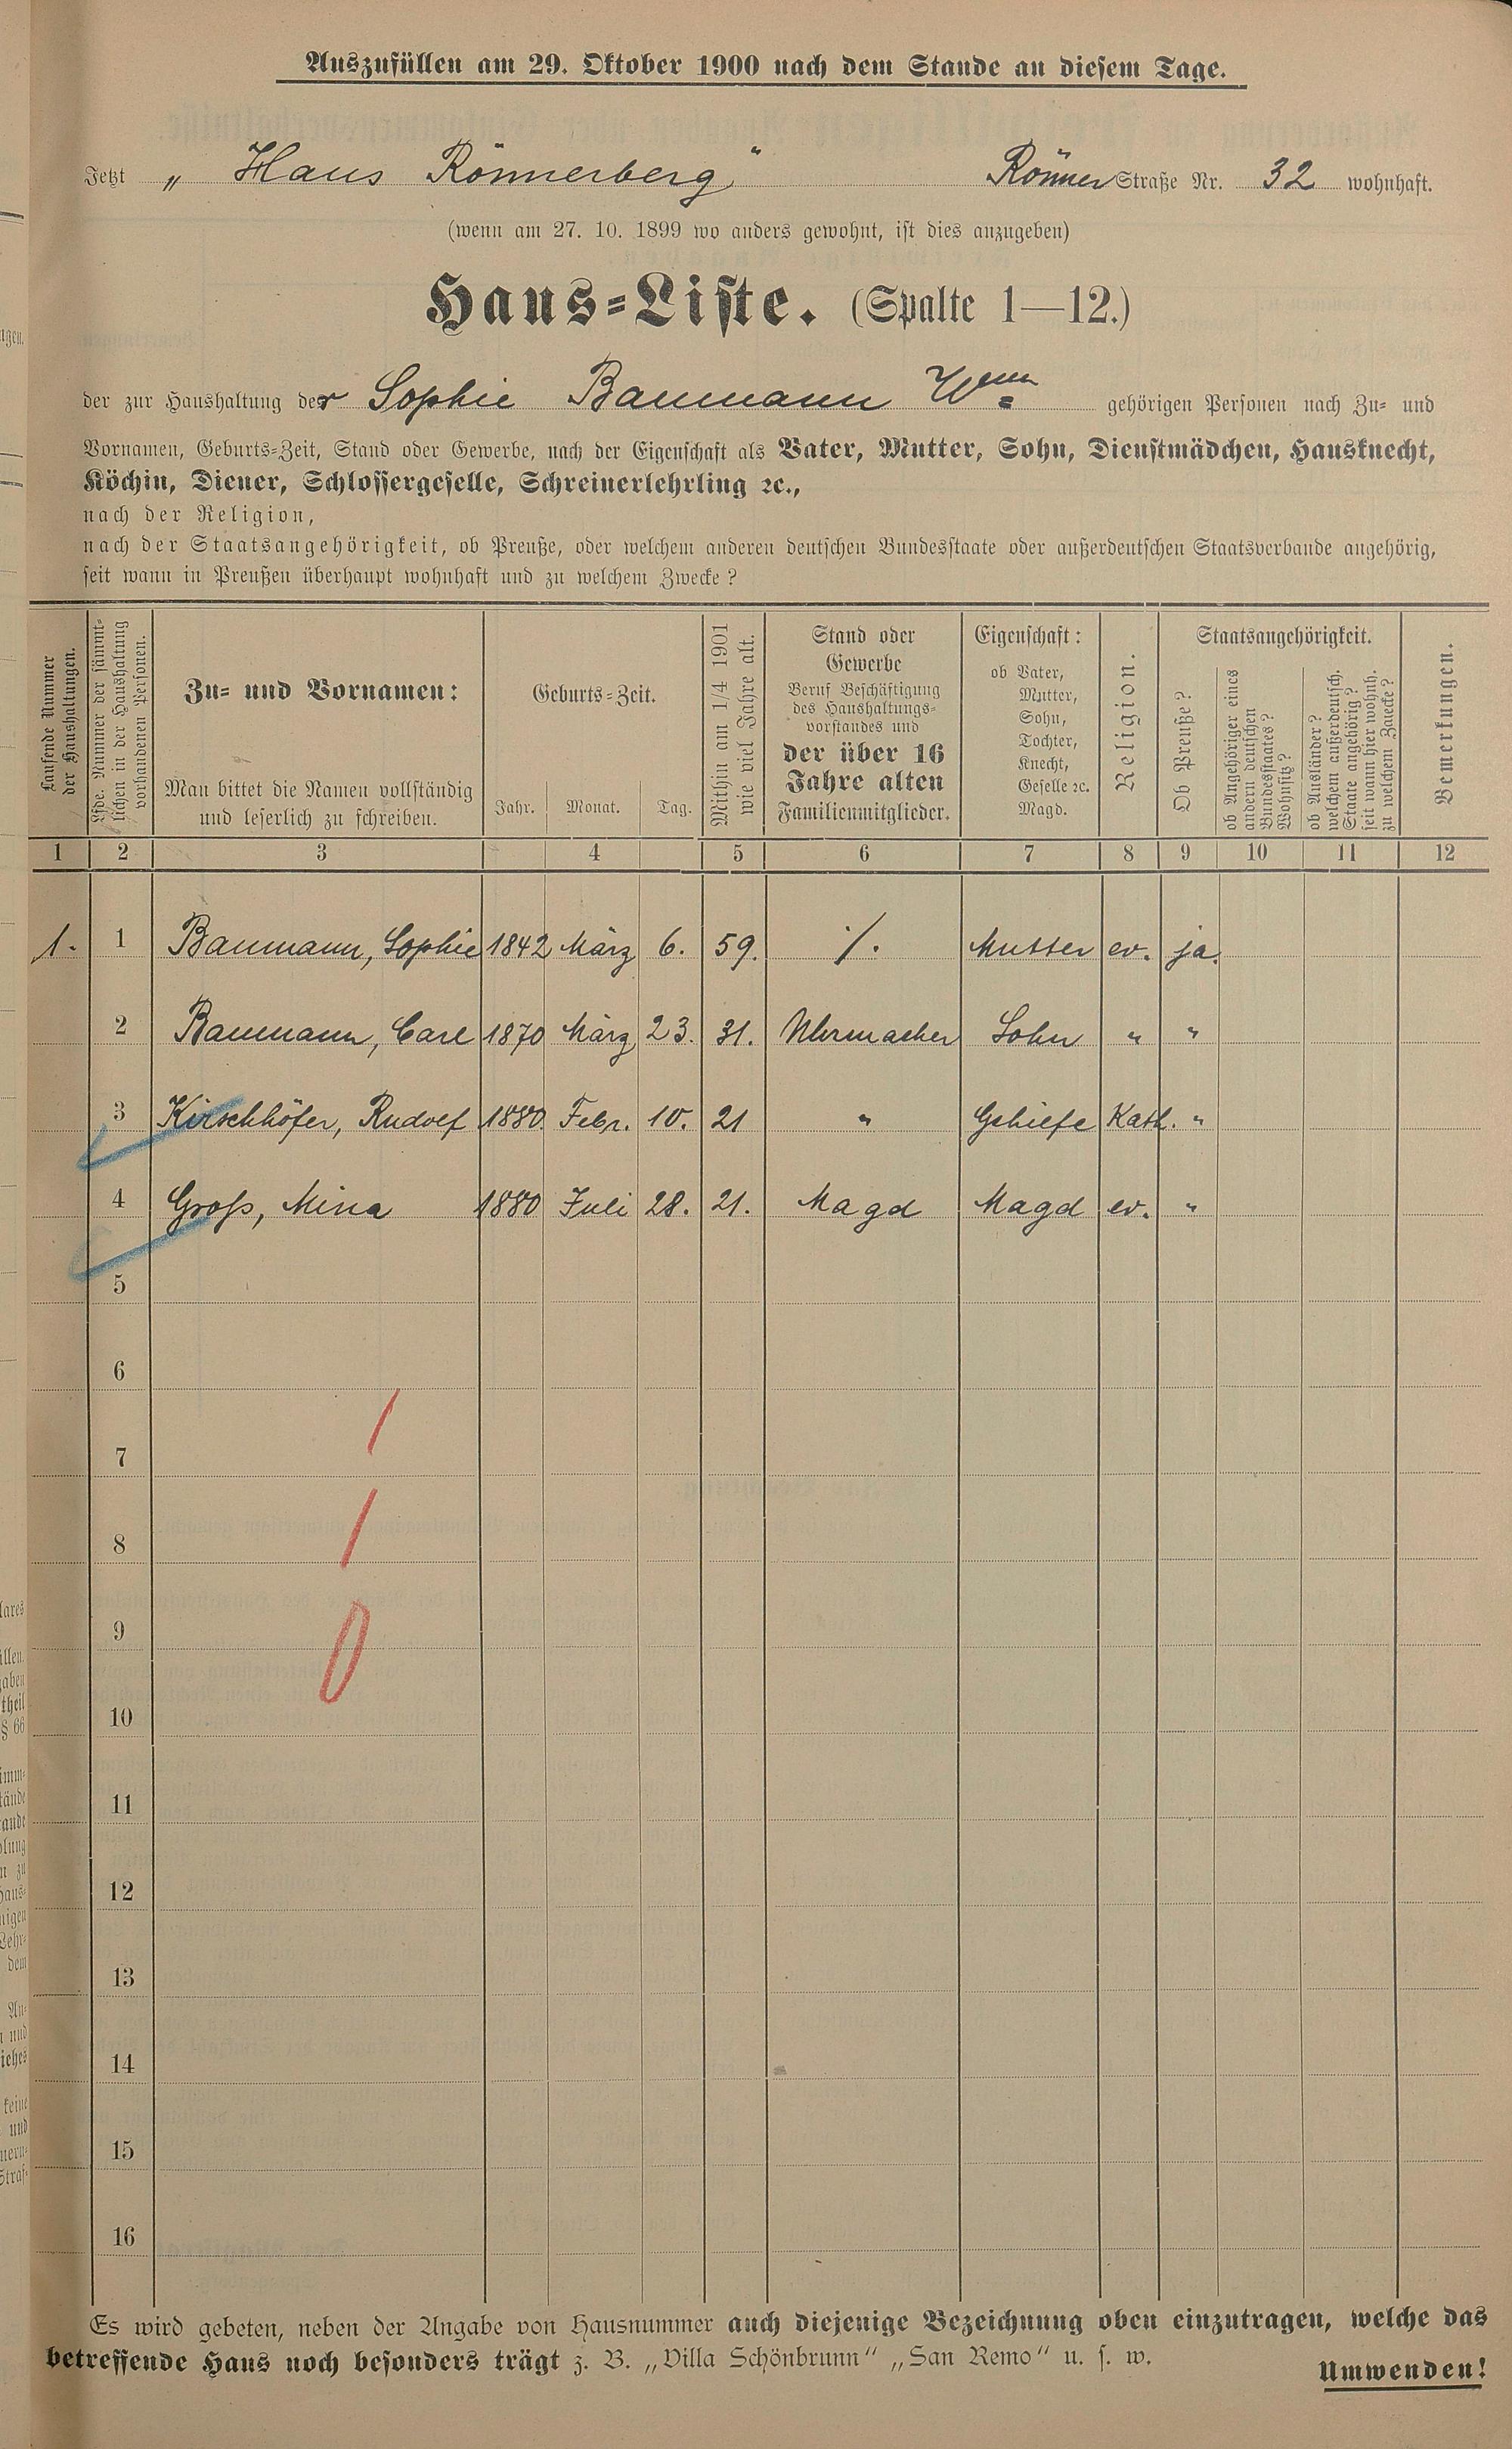 Auszufüllen am 29. Oktober 1900 nach dem Stande an diesem Tage.
Jetzt „ Haus Rönnerberg " Rönner Straße Nr. 32 wohnhaft.
(wenn am 27. 10. 1899 wo anders gewohnt, ist dies anzugeben)
Haus=Liste. (Spalte 1—12.)
der zur Haushaltung der Sophie Baumann Wwe gehörigen Personen nach Zu= und
Vornamen, Geburts=Zeit, Stand oder Gewerbe, nach der Eigenschaft als Vater, Mutter, Sohn, Dienstmädchen, Hausknecht,
Köchin, Diener, Schlossergeselle, Schreinerlehrling ꝛc.,
nach der Religion,
nach der Staatsangehörigkeit, ob Preuße, oder welchem anderen deutschen Bundesstaate oder außerdeutschen Staatsverbande angehörig,
seit wann in Preußen überhaupt wohnhaft und zu welchem Zwecke?
Laufende Nummer
der Haushaltungen.
Lfde. Nummer der sämmt=
lichen in der Haushaltung
vorhandenen Personen.
Zu= und Vornamen:
Man bittet die Namen vollständig
und leserlich zu schreiben.
Geburts=Zeit.
Jahr. Monat. Tag.
Mithin am 1/4 1901
wie viel Jahre alt.
Stand oder
Gewerbe
Beruf Beschäftigung
des Haushaltungs=
vorstandes und
der über 16
Jahre alten
Familienmitglieder.
Eigenschaft:
ob Vater,
Mutter,
Sohn,
Tochter,
Knecht,
Geselle ꝛc.
Magd.
Religion.
Staatsangehörigkeit.
Ob Preuße?
ob Angehöriger eines
andern deutschen
Bundesstaates?
Wohnsitz?
ob Ausländer?
welchem außerdeutsch.
Staate angehörig?
seit wann hier wohnh.
zu welchem Zwecke?
Bemerkungen.
1 2 3 4 5 6 7 8 9 10 11 12
1. 1 Baumann, Sophie 1842 März 6. 59. ./. Mutter ev. ja.
2 Baumann, Carl 1870 März 23. 31. Uhrmacher Sohn " "
3 Kirschhöfer, Rudolf 1880 Febr. 10. 21 " Gehilfe Kath. "
4 Groß, Mina 1880 Juli 28. 21. Magd Magd ev. "
5
6
7
8
9
10
11
12
13
14
15
16
Es wird gebeten, neben der Angabe von Hausnummer auch diejenige Bezeichnung oben einzutragen, welche das
betreffende Haus noch besonders trägt z. B. „Villa Schönbrunn" „San Remo" u. s. w.
Umwenden!